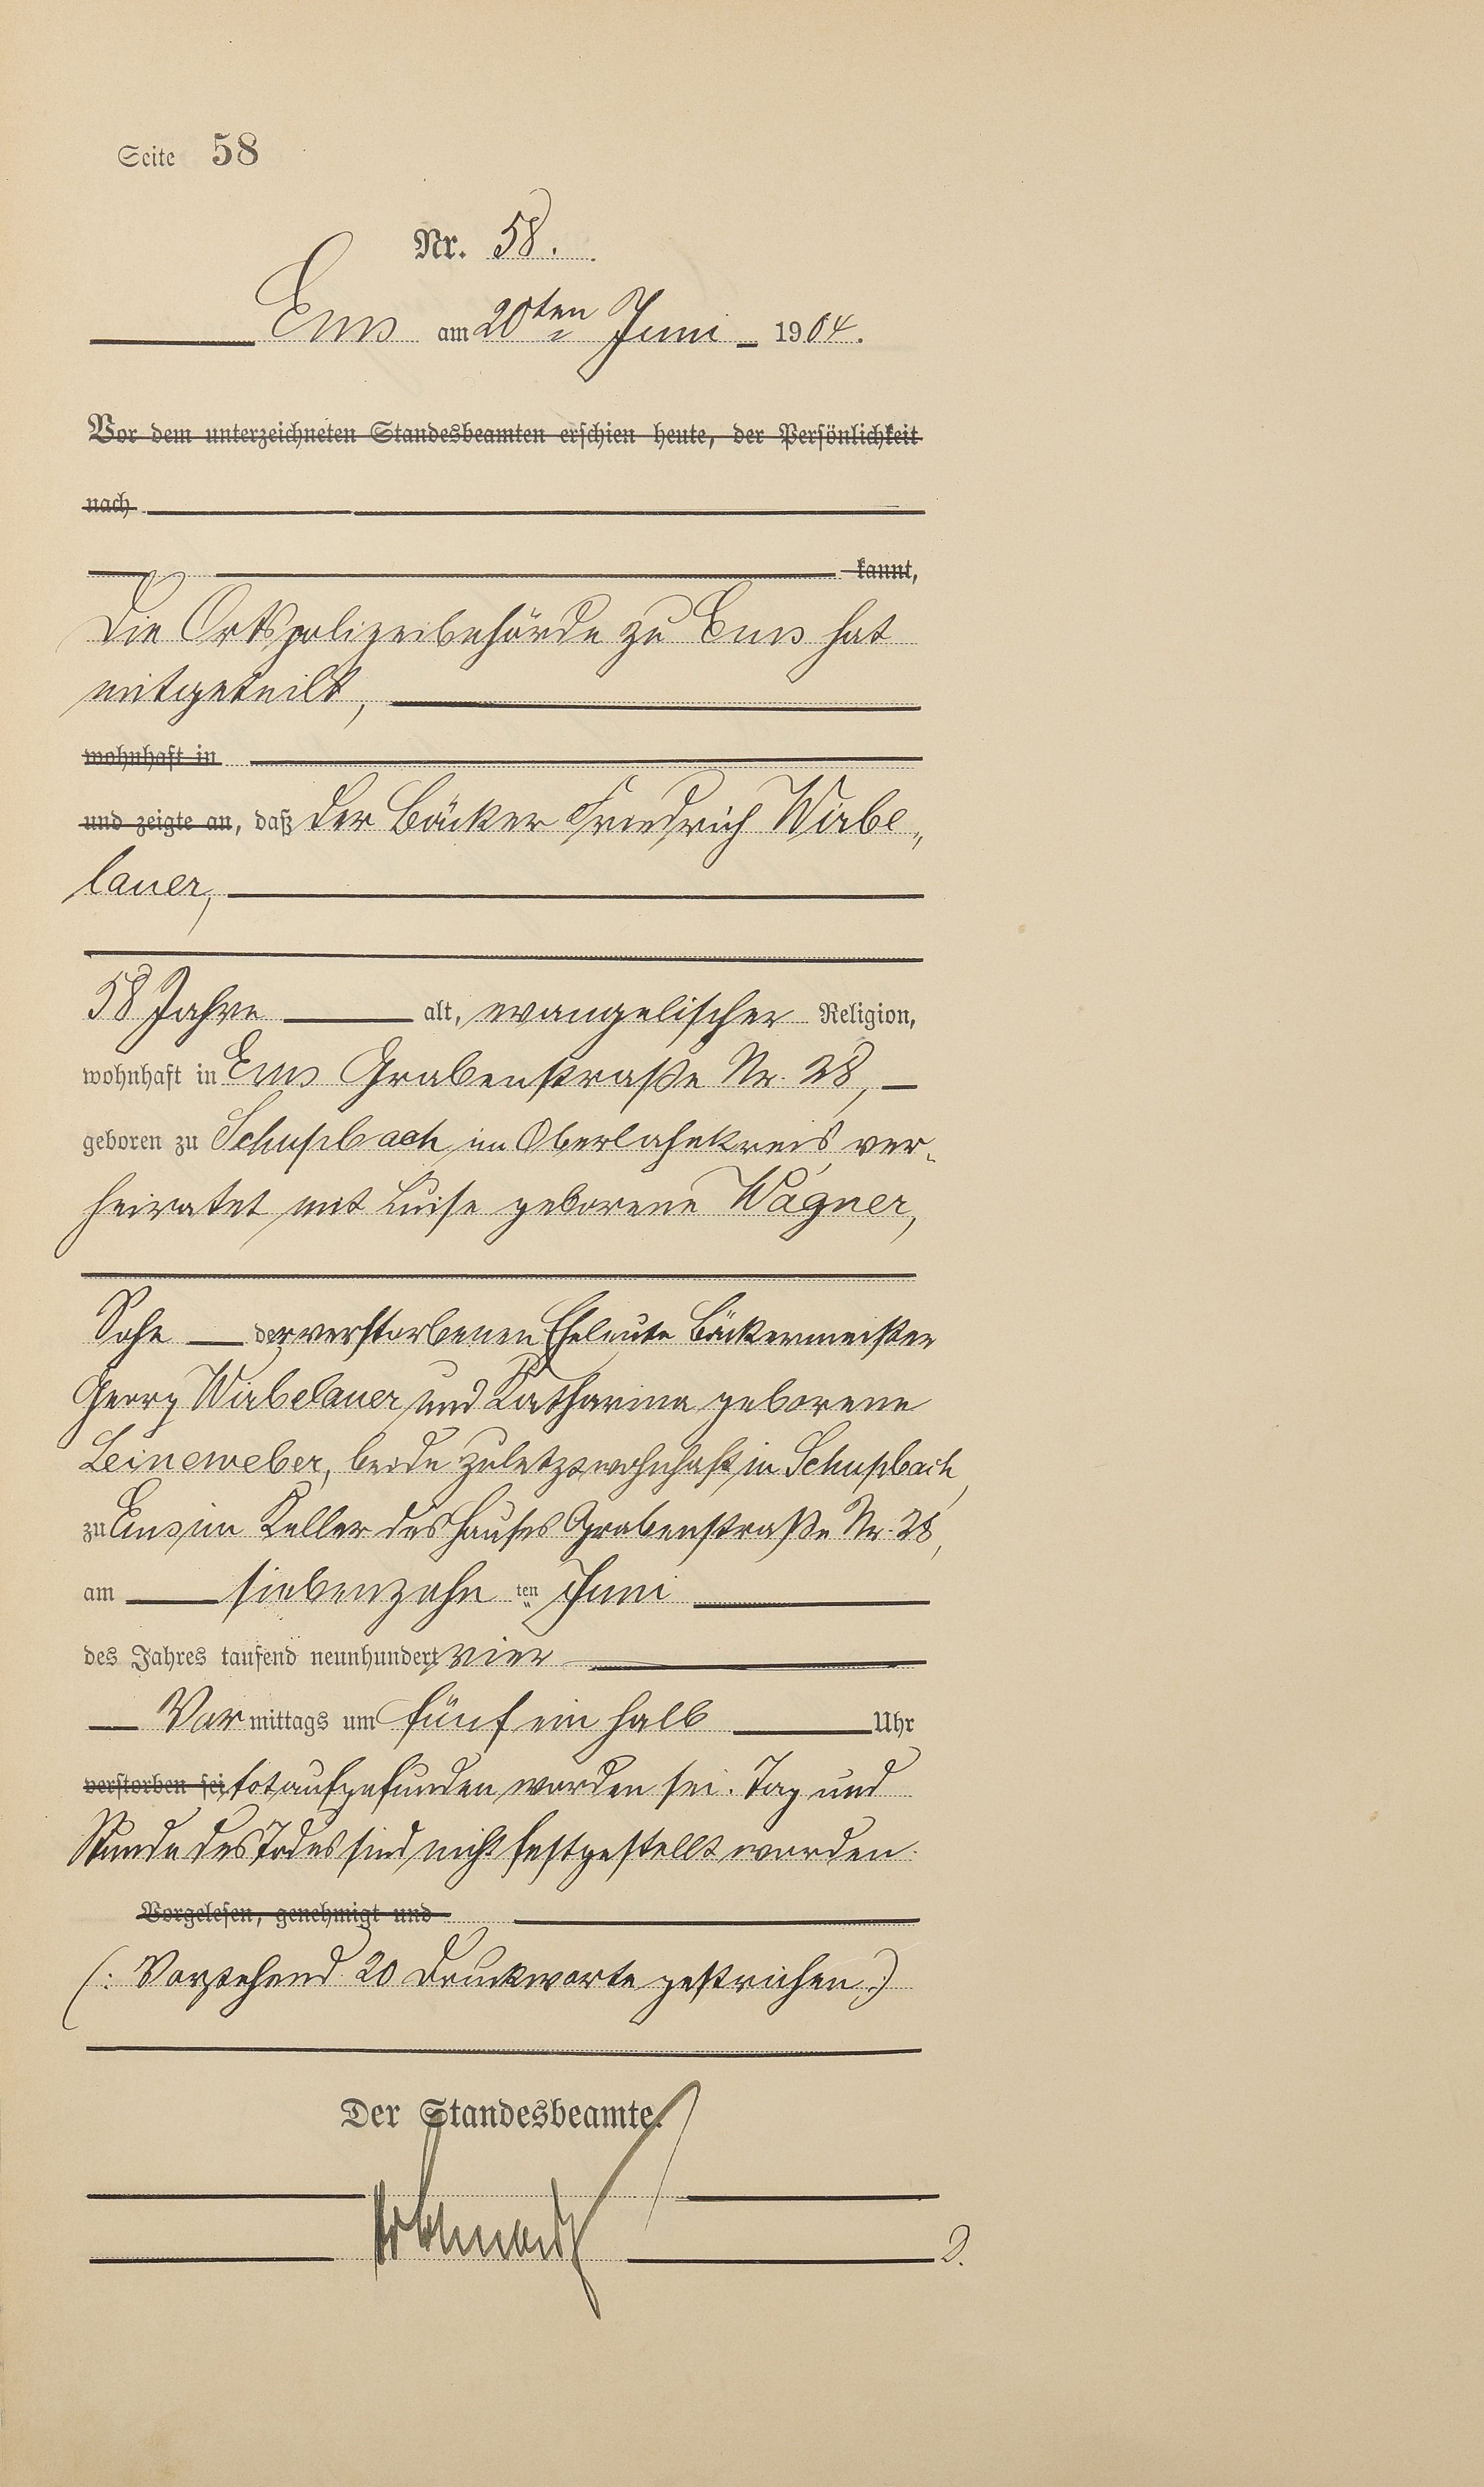 Seite 58
Nr. 58.
Ems am 20ten Juni 1904.
Vor dem unterzeichneten Standesbeamten erschien heute, der Persönlichkeit
nach
kannt,
Die Ortspolizeibehörde zu Ems hat
mitgeteilt,
wohnhaft in
und zeigte an, daß der Bäcker Friedrich Wirbe„
lauer,
58 Jahre alt, evangelischer Religion,
wohnhaft in Ems Grabenstraße Nr. 28,
geboren zu Schupbach im Oberlahnkreis, ver-
heiratet mit Luise geborene Wagner,
Sohn der verstorbenen Eheleute Bäckermeister
Georg Wirbelauer und Katharina geborene
Leineweber, beide zuletzt wohnhaft in Schupbach,
zu Ems im Keller des Hauses Grabenstraße Nr. 28,
am siebenzehn ten Juni
des Jahres tausend neunhundert vier
Vor mittags um fünf ein halb Uhr
verstorben sei tot aufgefunden worden sei. Tag und
Stunde des Todes sind nicht festgestellt worden.
Vorgelesen, genehmigt und
(: Vorstehend 20 Druckworte gestrichen.)
Der Standesbeamte.